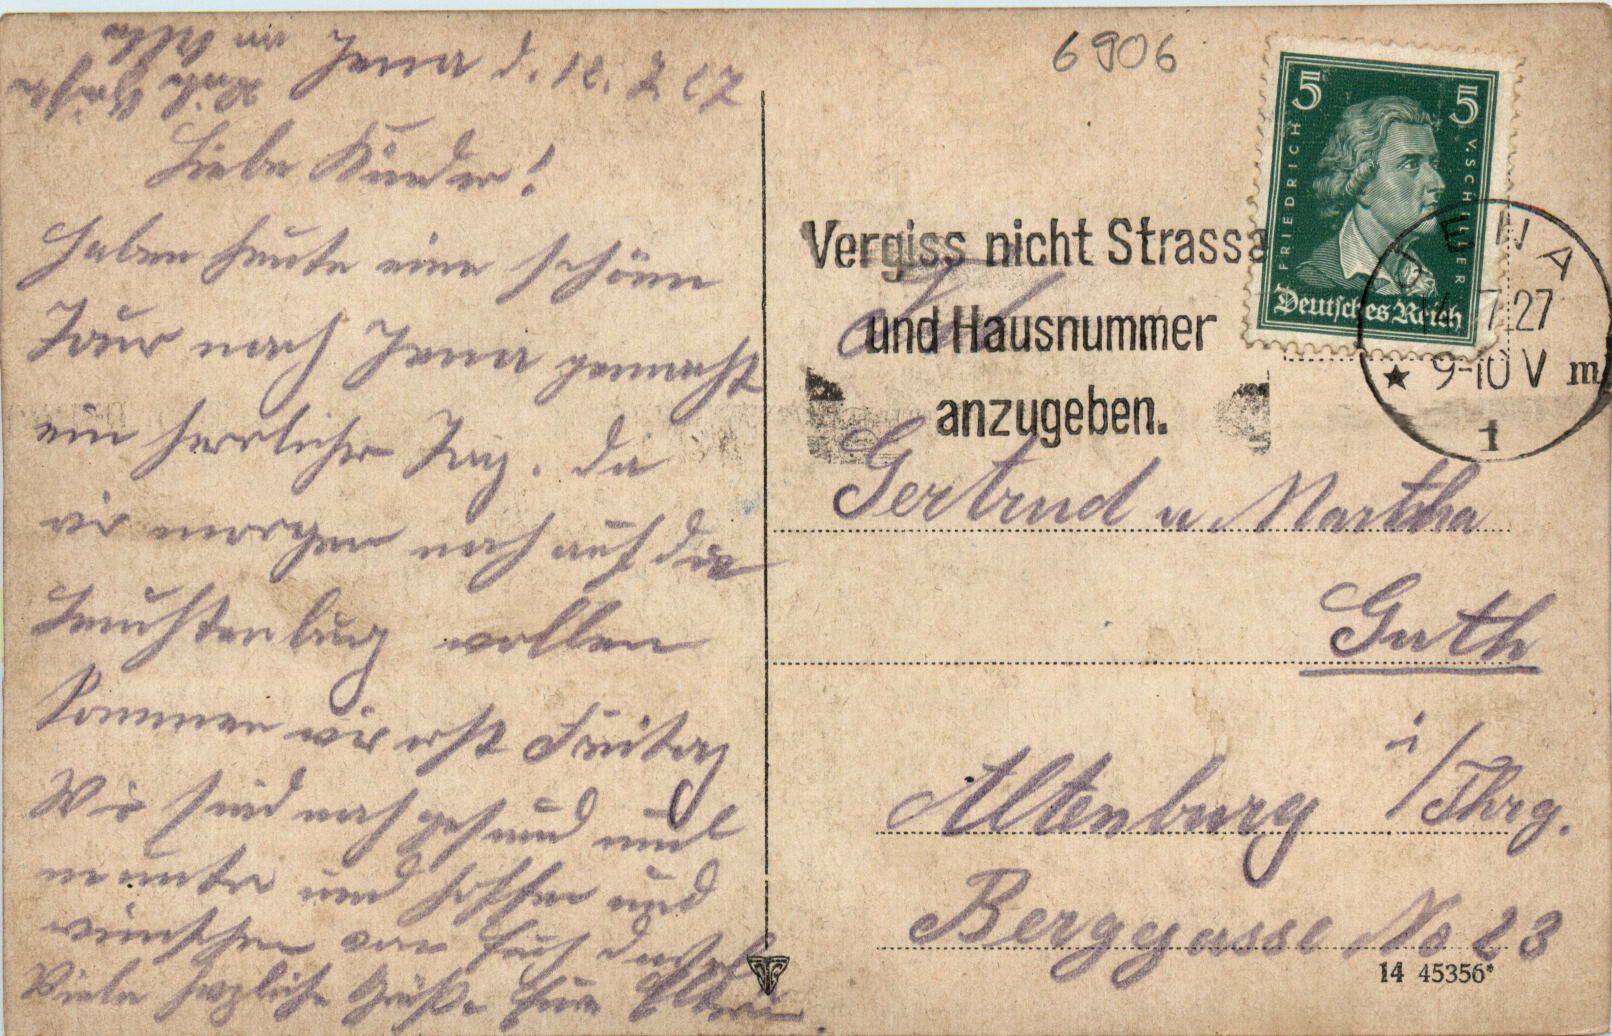 Jena d. 12. 7. 27
Liebe Kinder!
Haben heute eine schöne
Tour nach Jena gemacht
ein herrlicher Tag. da
wir morgen noch auf die
Leuchtenburg wollen
kommen wir erst Freitag
Wir sind noch gesund und
munter und hoffen und
wünschen von Euch dasselbe
Viele herzliche Grüße Eure Eltern.
6906
5 5
FRIEDRICH V. SCHILLER
Deutsches Reich
JENA
14.7.27
9-10 V m
1
Vergiss nicht Strasse
und Hausnummer
anzugeben.
Gertrud u. Martha
Guth
Altenburg i/Thrg.
Berggasse No 23
14 45356*